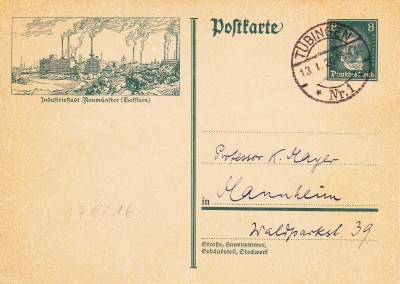 Postkarte
8
Deutsches Reich
TÜBINGEN
13.1.2
* Nr. 1
Industriestadt Neumünster (Holstein)
Professor K. Mayer
in Mannheim
Waldparkst. 39
Straße, Hausnummer,
Gebäudeteil, Stockwerk
178/16